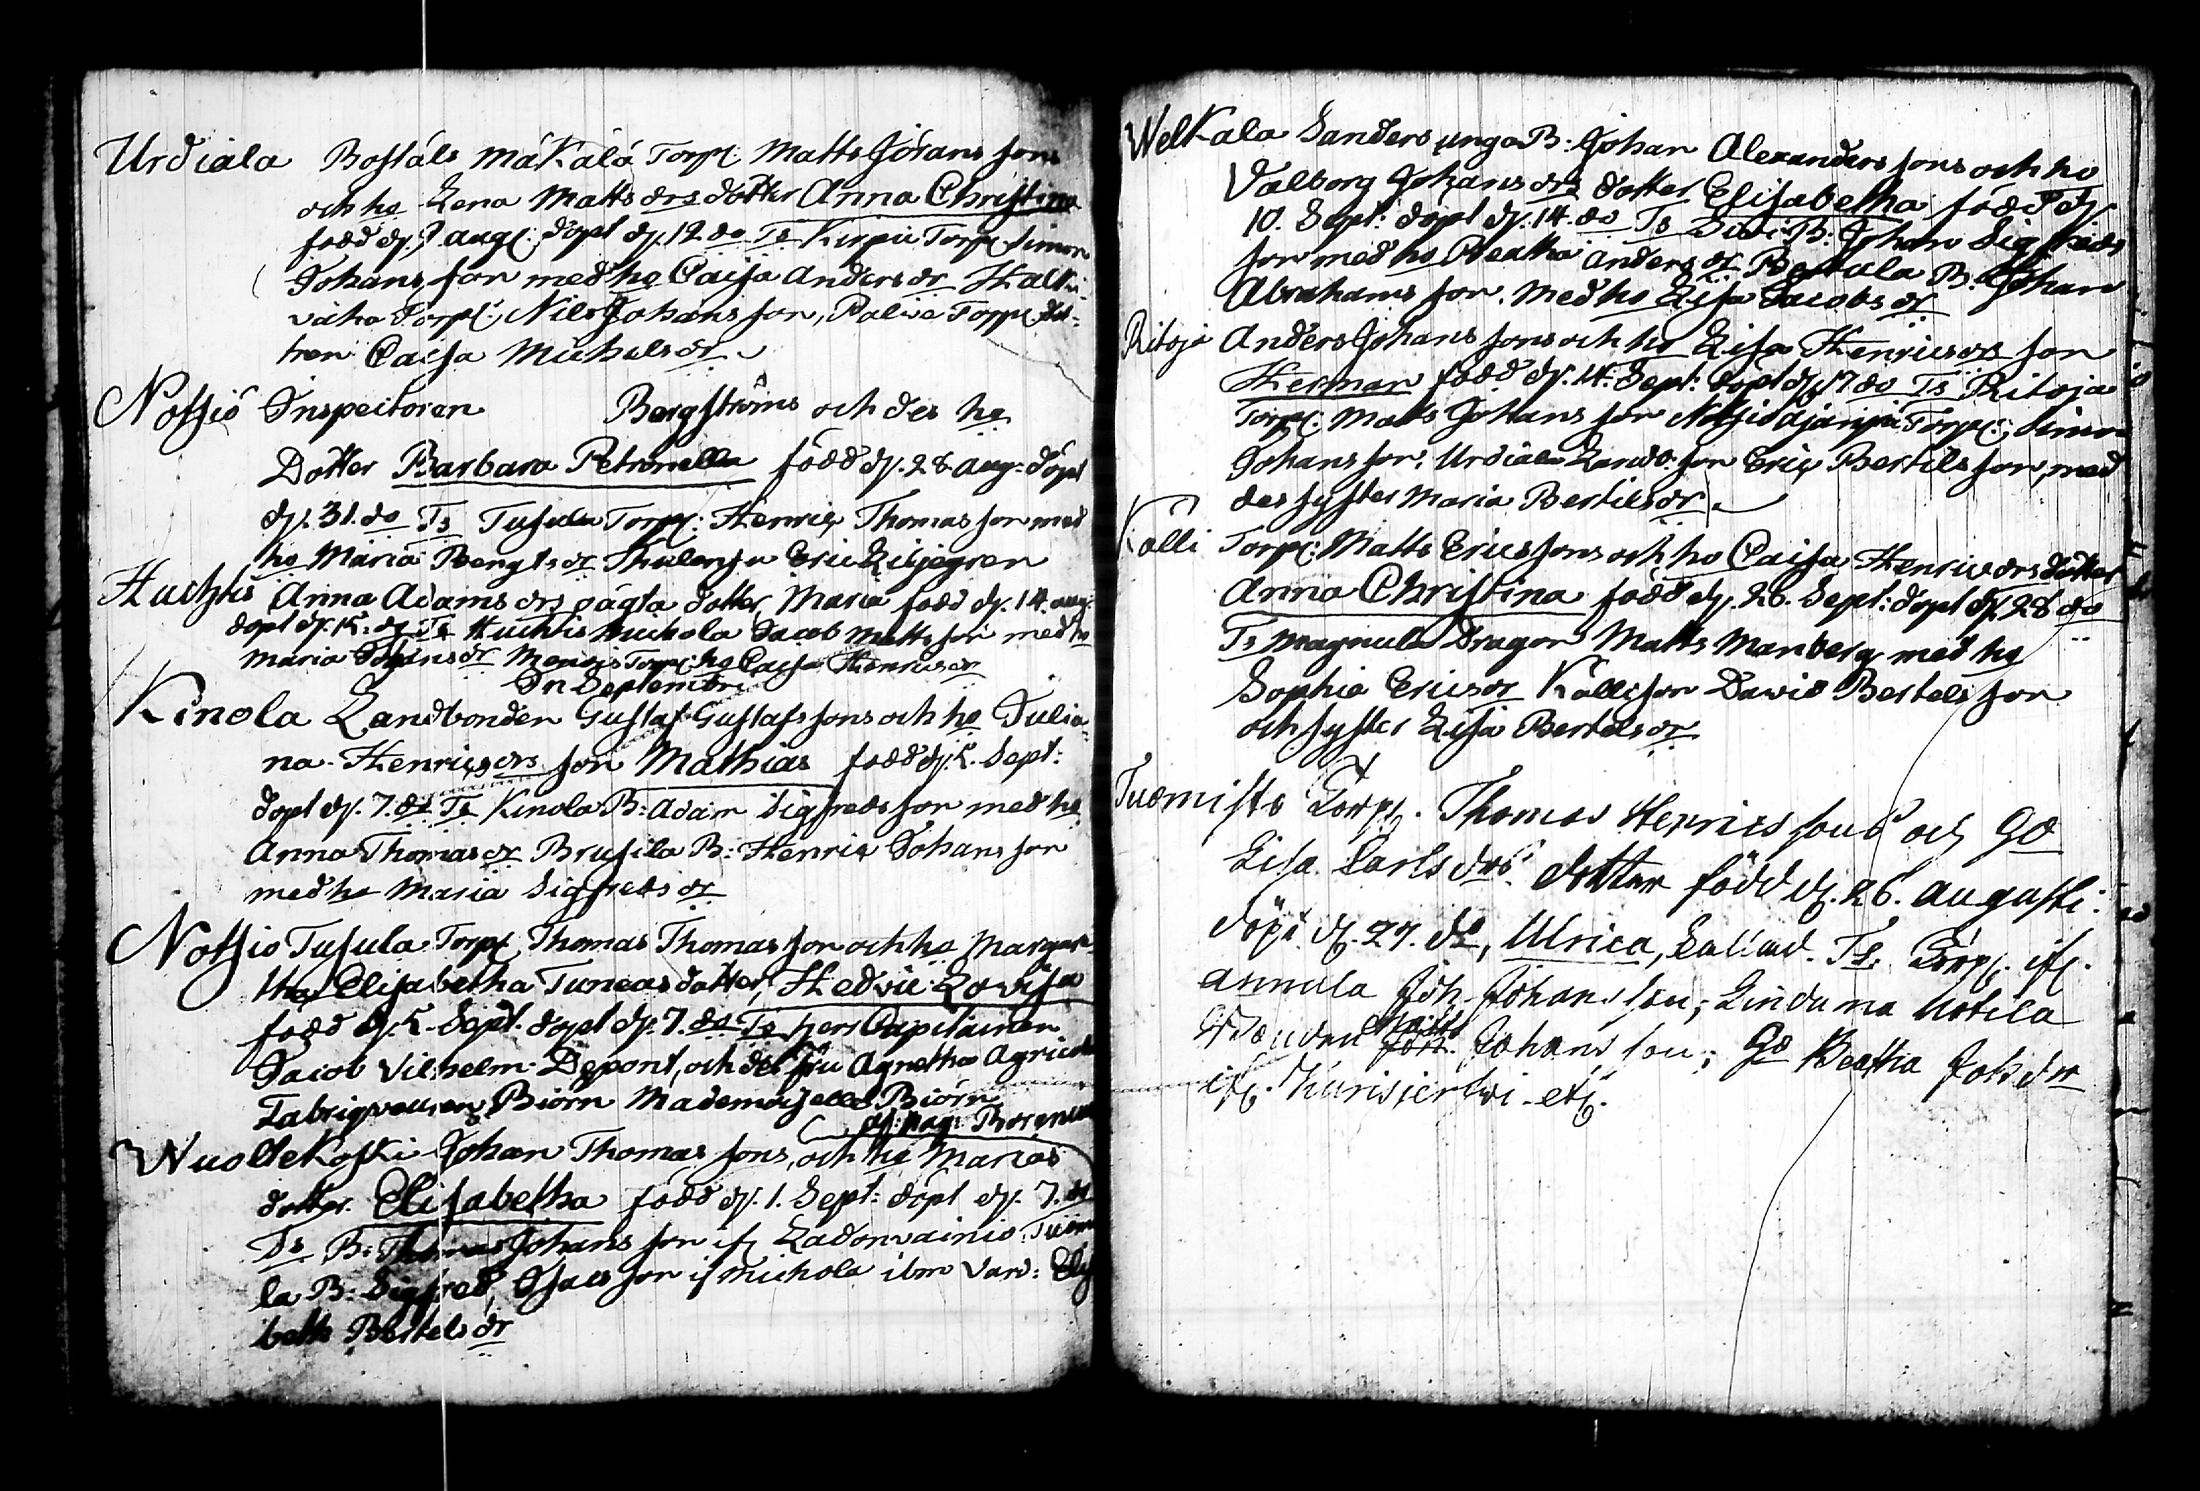 Urdiala Bostäls Mäkälä Torp: Matts Jörans sons
och ho Lena Matts drs dotter Anna Christina
född d. 9 aug: döpt d. 12 do Ts Kirpu Torp: Simon
Johans son med ho Caisa Anders dr Halki-
vaha Torp: Nils Johans son, Palvia Torp:
tren Caisa Michels dr
Notsiö Inspectoren Bergströms och des ho
Dotter Barbara Petronella född d. 28 Aug: döpt
d. 31. do Ts Tusula Torp: Henric Thomas son med
ho Maria Bengts dr Eric Liljegren
Huchtis Anna Adams drs oägta dotter Maria född d. 14. aug:
döpt d. 15. do Ts Huchtis Michola Jacob Matts son med ho
Maria Johans dr Menois Torp: ho Caisa Henrics dr
In Septembri
Kinola Landbonden Gustaf Gustafs sons och ho Julia-
na Henrics drs son Mathias född d. 5. Sept:
döpt d. 7. do Ts Kinola B: Adam Sigfreds son med ho
Anna Thomas dr Brusila B: Henric Johans son
med ho Maria Sigfreds dr
Notsio Tusula Torp: Thomas Thomas son och ho Margare-
tha Elisabetha Tuneas dotter, Hedvic Lovisa
född d. 5. Sept. döpt d. 7. do Ts Herr Capitainen
Jacob Vilhelm Depont, och des fru Agnetha Agricola
Fabriqveuren Biörn Mademoiselle Biörn
Wuoltekoski Johan Thomas sons, och ho Marias
dotter Elisabetha född d. 1. Sept: döpt d. 7. do
Ts B: Thomas Johans son if Ladonvainio Tuome-
la B: Sigfred Isacs son if Michola ibm Vard: Elisa-
beth Bertels dr
Welkala Sanders unga B: Johan Alexanders sons och ho
Valborg Johans drs dotter Elisabetha född d.
10. Sept: döpt d. 14. do Ts B: Johan Sigfreds
son med ho Beatha Anders dr Bertula B: Johan
Abrahams son. med ho Lisa Jacobs dr
Ritoja Anders Johans sons och ho Lisa Henrics drs son
Herman född d. 14. Sept: döpt d. 17 do Ts Ritoja
Torp: Matts Johans son Notsiö Torp: Simon
Johans son. Urdiala Landb: son Eric Bertils son, med
des syster Maria Bertils dr
Kålli Torp: Matts Erics sons och ho Caisa Henrics drs dotter
Anna Christina född d. 26. Sept: döpt d. 28 do
Ts Magnula Dragon Matts Manberg med ho
Sophia Erics dr Kålli son David Bertels son
och syster Lisa Bertels dr
Tuomisto Torp. Thomas Henrics sons och ho
Lisa Carls drs dotter född d. 26. Augusti.
döpt d. 27. do, Ulrica, kallad. Ts. Torp. if.
Annula Joh. Johans son; Linduma Uotila
Matts Johans son; ho Beatha Johs dr
if. Kurisjerfvi. etc.